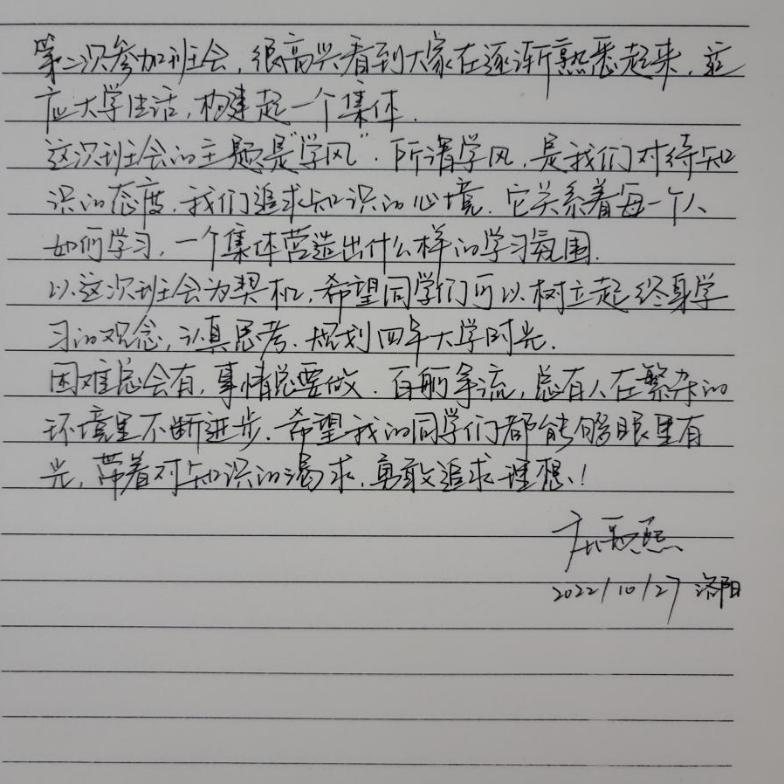 第二次参加班会，很高兴看到大家在逐渐熟悉起来，适
应大学生活，构建起一个集体.
这次班会的主题是“学风”.所谓学风，是我们对待知
识的态度.我们追求知识的心境.它关系着每一个人
如何学习，一个集体营造出什么样的学习氛围.
以这次班会为契机，希望同学们可以树立起终身学
习的观念，认真思考.规划四年大学时光.
困难总会有，事情总要做.百舸争流，总有人在繁杂的
环境里不断进步.希望我的同学们都能够眼里有
光，带着对知识的渴求，勇敢追求理想！
2022/10/27 洛阳